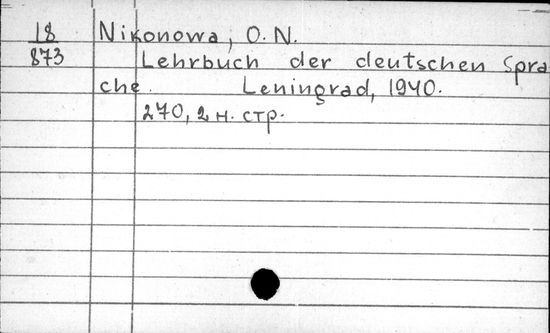 18 Nikonowa, O. N.
873 Lehrbuch der deutschen Spra
che. Leningrad, 1940.
270, 2 н. стр.